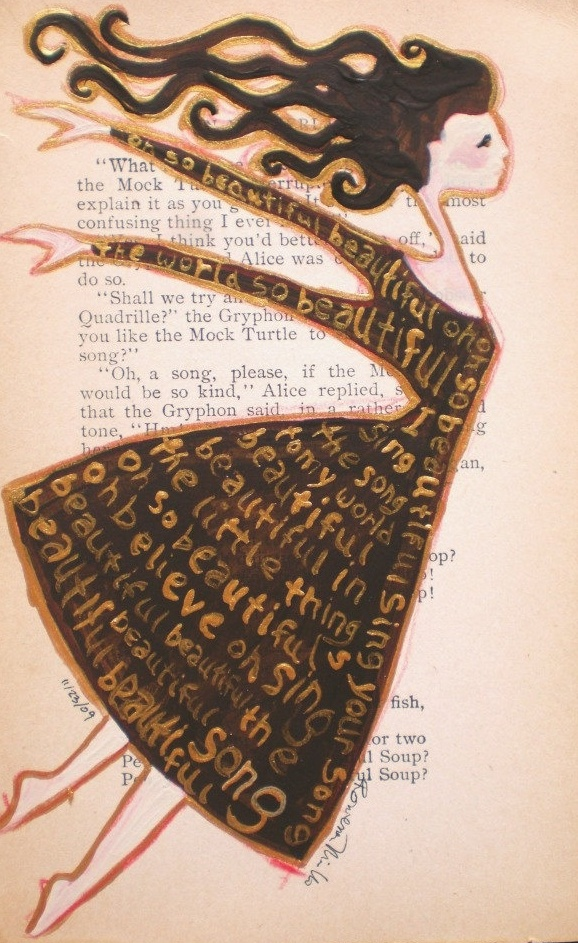 "What
the Mock
explain it as you
most
confusing thing I ever
I think you'd
off," said
Alice was
to
do so.
"Shall we try
Quadrille?" the Gryphon
you like the Mock Turtle to
song?"
"Oh, a song, please, if the
would be so kind," Alice replied,
that the Gryphon said, in a rather
tone,
fish,
for two
Soup?
Soup?
oh so beautiful beautiful oh oh
the world so beautiful
so beautiful sing your song
I
Sing
the song
to my world
beautiful
beautiful in
the little things
oh so beautiful
oh believe oh sing
beautiful beautiful the
beautiful beautiful song
beautiful beautiful
11/23/09